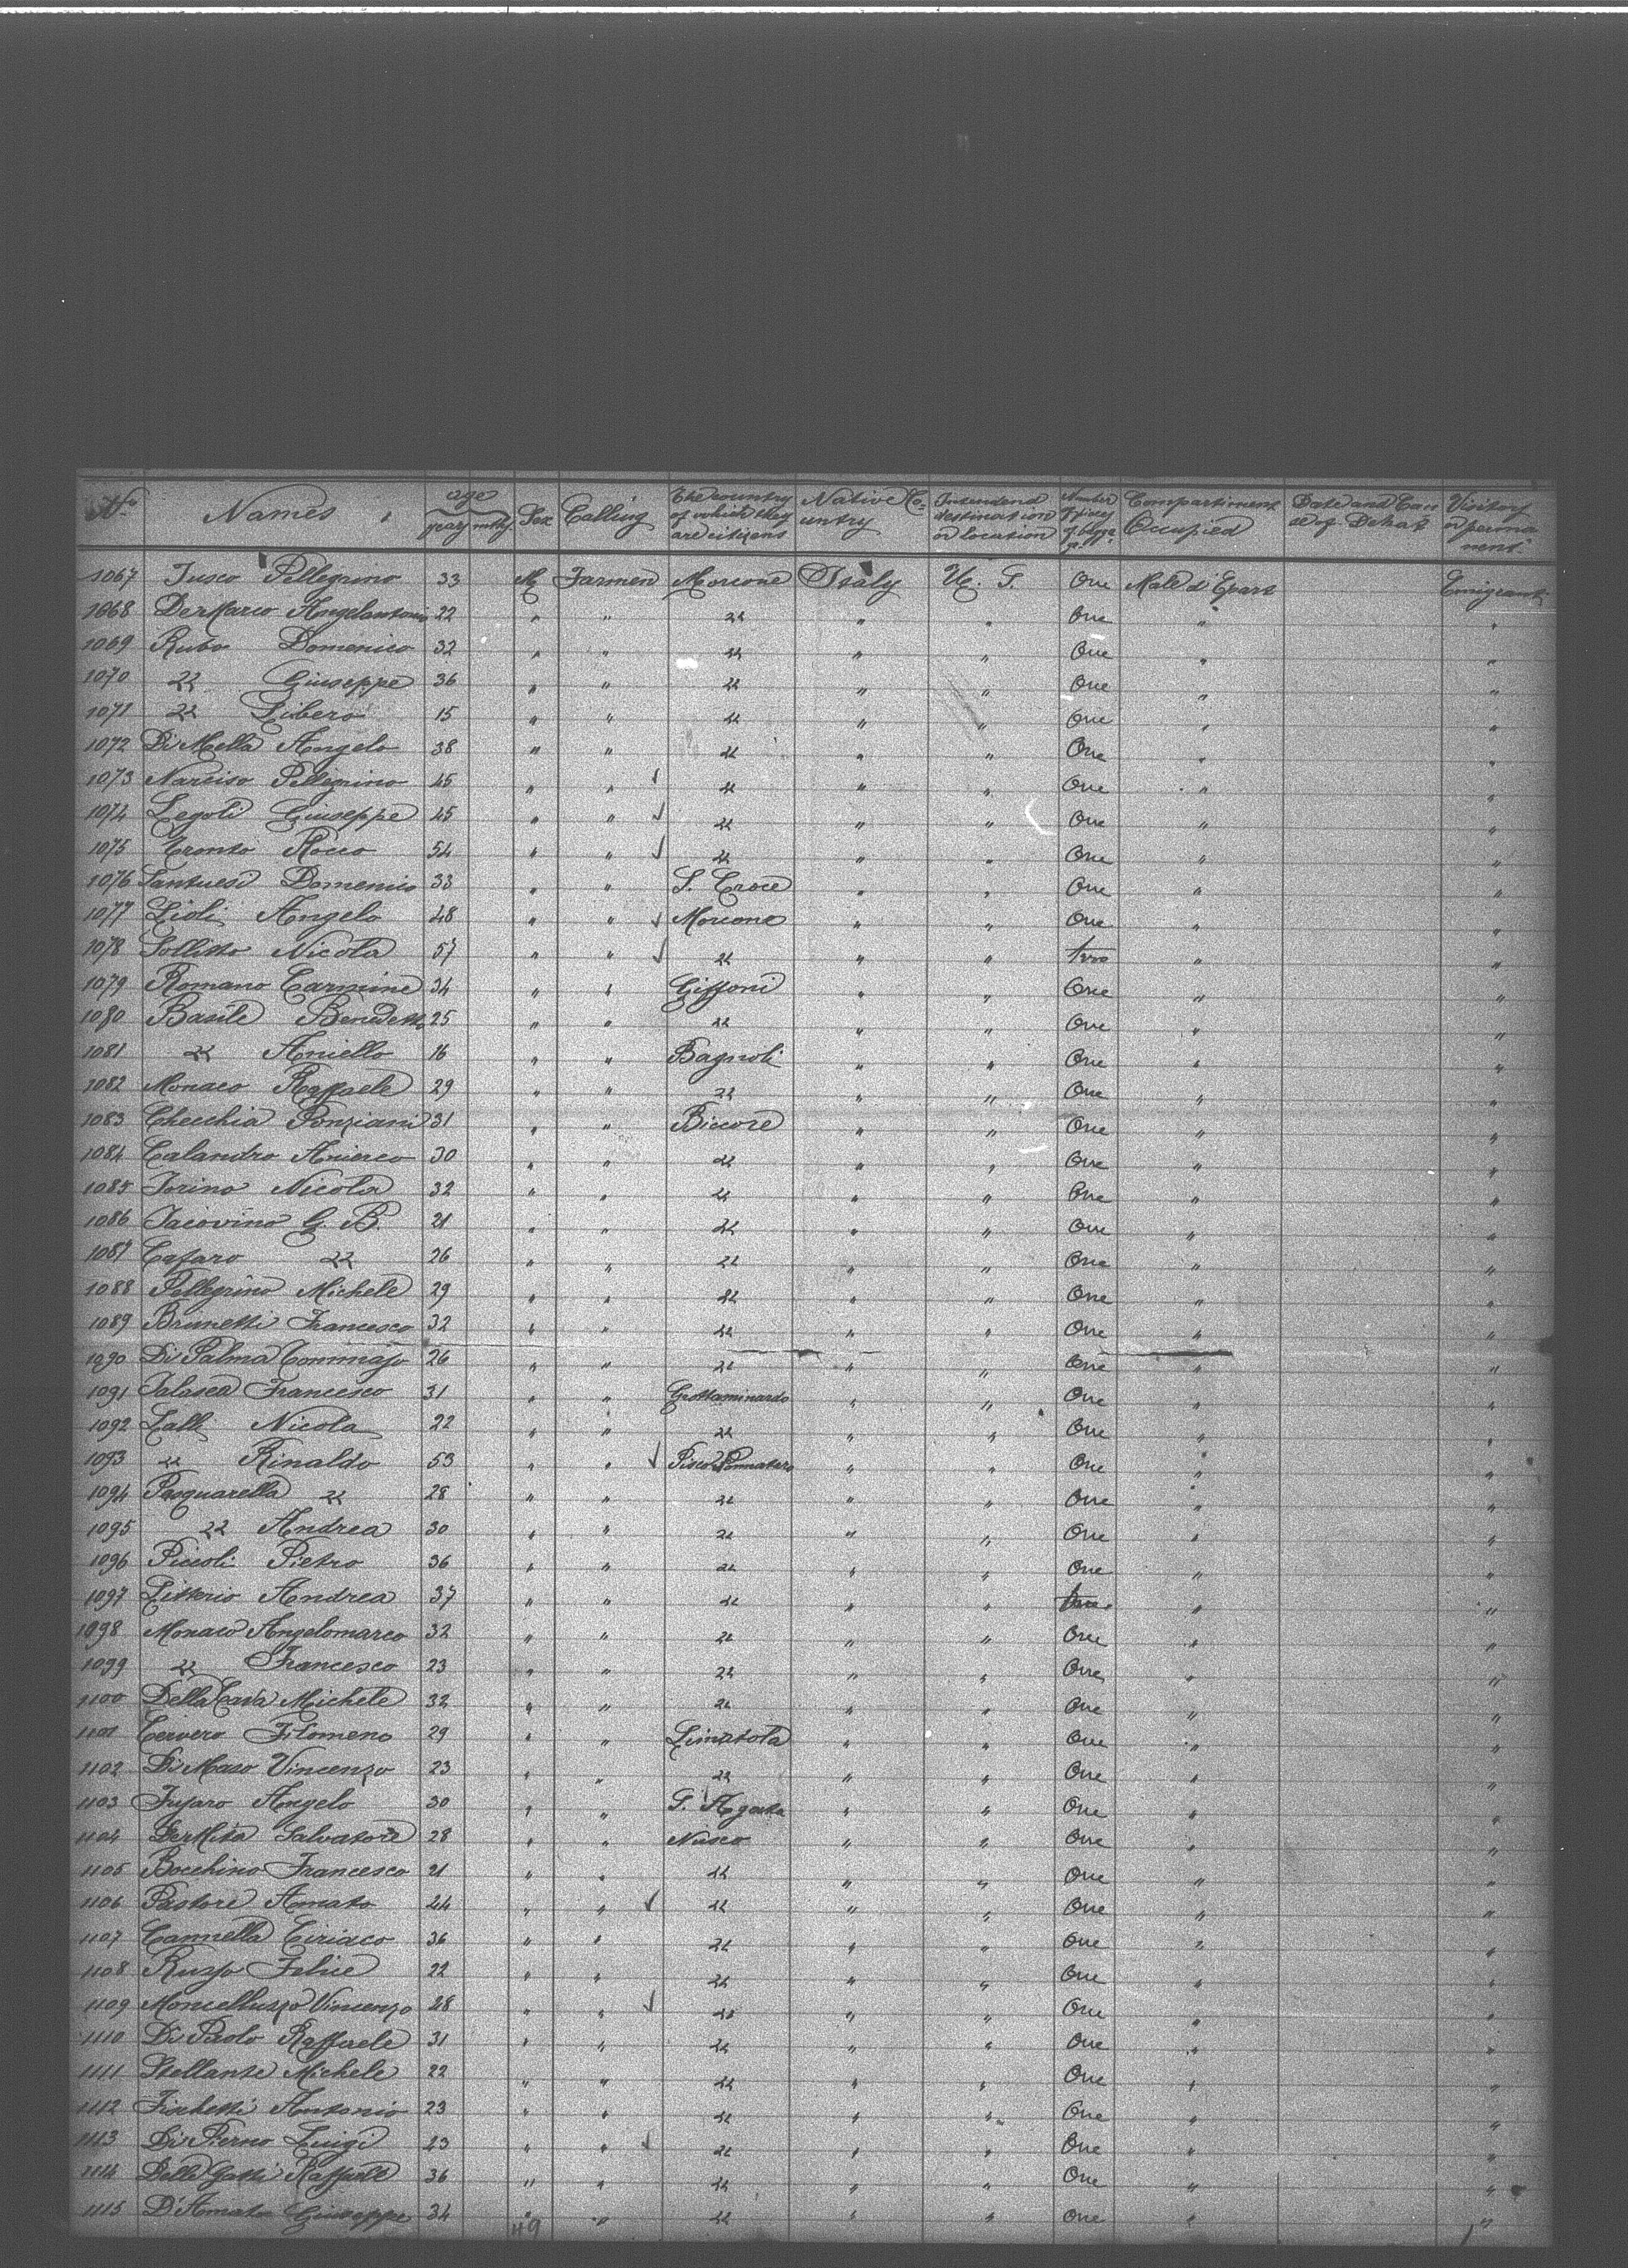 No. Names age years mths Sex Calling The country of which they are citizens Native Co=untry Intendend destination or location Number of pieces of bagga ge Compartiment Occupied Date and Cau se of Dehat Visitory or perma nent
1067 Fusco Pellegrino 33 M Farmen Morcone Italy U. S. One Male d'Epart Emigrant
1068 DeMarco Angelantonio 22 " " " " " One " "
1069 Rubo Domenico 32 " " " " " One " "
1070 " Giuseppe 36 " " " " " One " "
1071 " Libero 15 " " " " " One " "
1072 Di Mella Angelo 38 " " " " " One " "
1073 Narciso Pellegrino 45 " " " " " One " "
1074 Legoli Giuseppe 45 " " " " " One " "
1075 Tronto Rocco 54 " " " " " One " "
1076 Santucsi Domenico 33 " " S. Croce " " One " "
1077 Lioli Angelo 48 " " Morcone " " One " "
1078 Sollitto Nicola 57 " " " " " two " "
1079 Romano Carmine 34 " " Giffoni " " One " "
1080 Basile Benedetto 25 " " " " " One " "
1081 " Aniello 16 " " Bagnoli " " One " "
1082 Monaco Raffaele 29 " " " " " One " "
1083 Checchia Ponziano 31 " " Biccore " " One " "
1084 Calandro 30 " " " " " One " "
1085 Torino Nicola 32 " " " " " One " "
1086 Iacovino G. B. 21 " " " " " One " "
1087 Cafaro " 26 " " " " " One " "
1088 Pellegrino Michele 29 " " " " " One " "
1089 Brunetti Francesco 32 " " " " " One " "
1090 Di Palma Tommaso 26 " " " " " One " "
1091 Talasca Francesco 31 " " Grottaminardo " " One " "
1092 Lalli Nicola 22 " " " " " One " "
1093 " Rinaldo 53 " " " " One " "
1094 Pasquarella " 28 " " " " " One " "
1095 " Andrea 30 " " " " " One " "
1096 Piccoli Pietro 36 " " " " " One " "
1097 Litterio Andrea 37 " " " " " two " "
1098 Monaco Angelomarco 32 " " " " " One " "
1099 " Francesco 23 " " " " " One " "
1100 Della Cava Michele 32 " " " " " One " "
1101 Cervero Filomeno 29 " " Limatola " " One " "
1102 Di Maso Vincenzo 23 " " " " " One " "
1103 Fusaro Angelo 30 " " S. Agata " " One " "
1104 DeMita Salvatore 28 " " Nusco " " One " "
1105 Bocchino Francesco 21 " " " " " One " "
1106 Pastore Amato 44 " " " " " One " "
1107 Cannella Ciriaco 36 " " " " " One " "
1108 Russo Felice 22 " " " " " One " "
1109 Moncelluzzo Vincenzo 48 " " " " " One " "
1110 Di Paolo Raffaele 31 " " " " " One " "
1111 Stellante Michele 22 " " " " " One " "
1112 Fischetti Antonio 23 " " " " " One " "
1113 Di Pierno Luigi 43 " " " " " One " "
1114 Delli Gatti Raffaele 36 " " " " " One " "
1115 D'Amato Giuseppe 34 " " " " " One " "
49